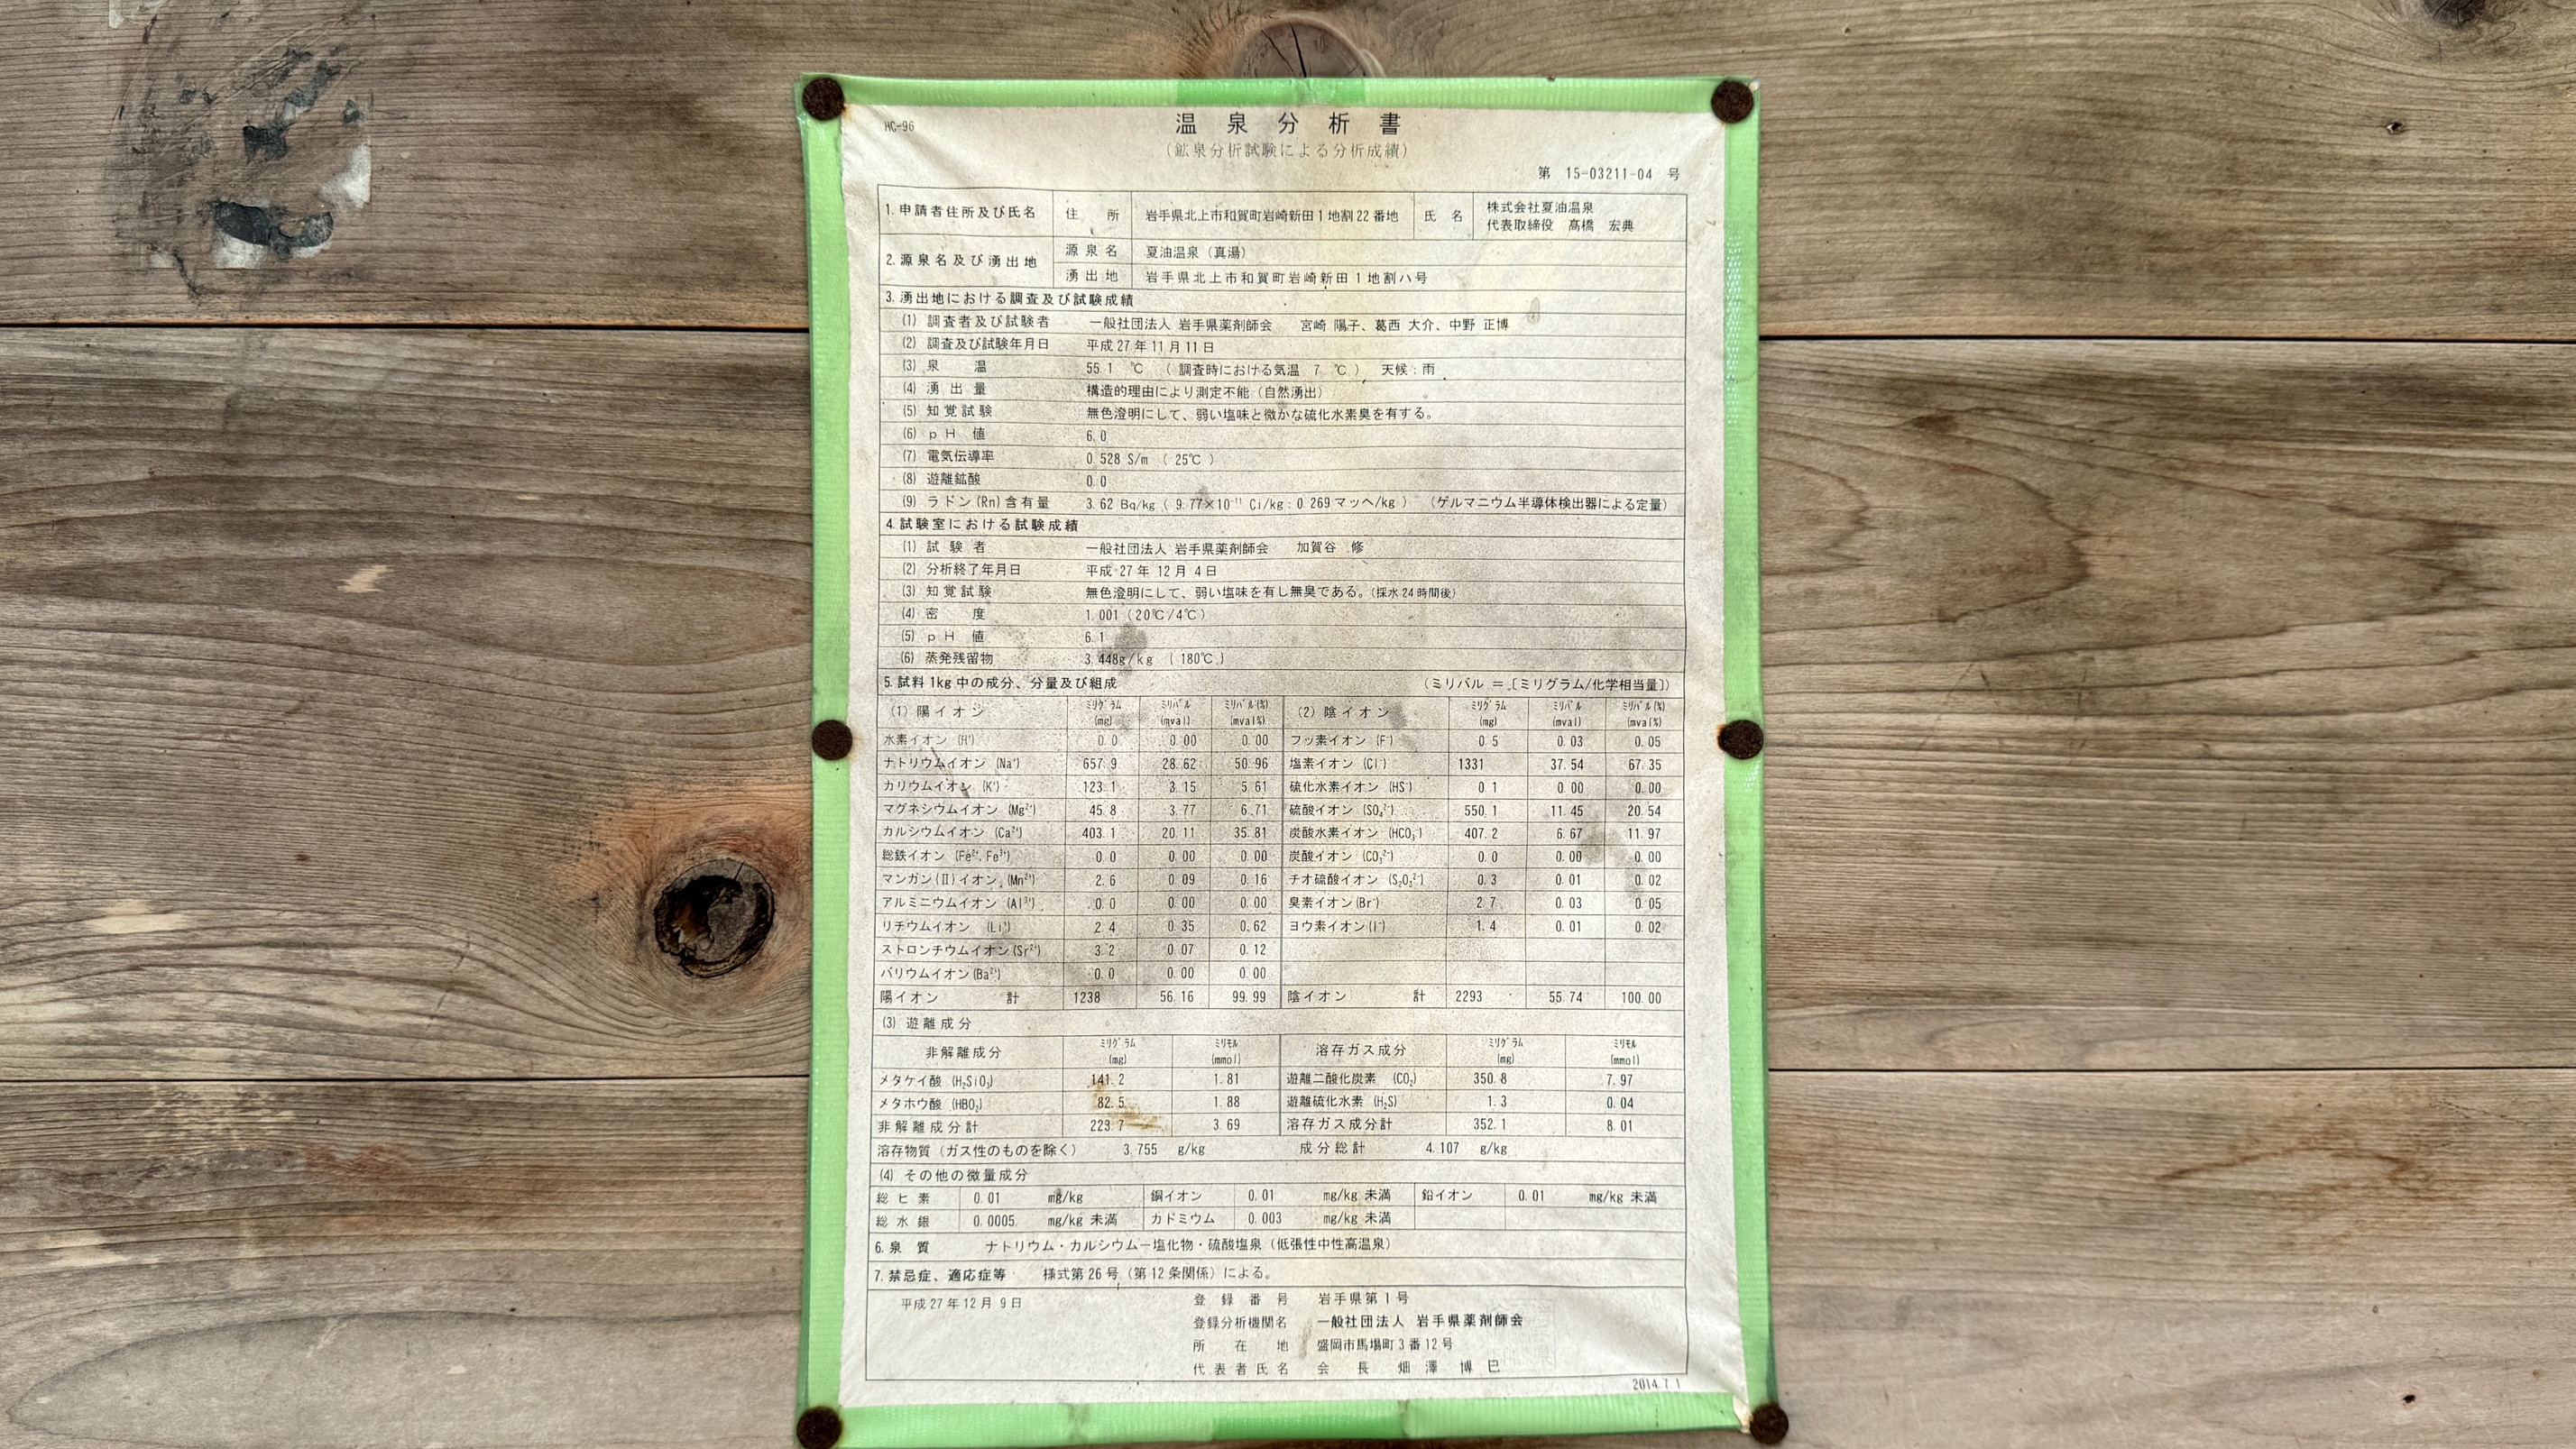 HC-96
温泉分析書
(鉱泉分析試験による分析成績)
第 15-03211-04 号
1.申請者住所及び氏名 住所 岩手県北上市和賀町岩崎新田1地割22番地 氏名 株式会社夏油温泉
代表取締役 高橋 宏典
2.源泉名及び湧出地 源泉名 夏油温泉(真湯)
湧出地 岩手県北上市和賀町岩崎新田1地割ハ号
3.湧出地における調査及び試験成績
(1) 調査者及び試験者 一般社団法人 岩手県薬剤師会 宮崎 陽子、葛西 大介、中野 正博
(2) 調査及び試験年月日 平成27年11月11日
(3) 泉温 55.1 ℃ ( 調査時における気温 7 ℃ ) 天候:雨
(4) 湧出量 構造的理由により測定不能(自然湧出)
(5) 知覚試験 無色澄明にして、弱い塩味と微かな硫化水素臭を有する。
(6) pH 値 6.0
(7) 電気伝導率 0.528 S/m ( 25℃ )
(8) 遊離鉱酸 0.0
(9) ラドン(Rn)含有量 3.62 Bq/kg ( 9.77×10⁻¹¹ Ci/kg : 0.269マッヘ/kg ) (ゲルマニウム半導体検出器による定量)
4.試験室における試験成績
(1) 試験者 一般社団法人 岩手県薬剤師会 加賀谷 修
(2) 分析終了年月日 平成27年12月4日
(3) 知覚試験 無色澄明にして、弱い塩味を有し無臭である。(採水24時間後)
(4) 密度 1.001 (20℃/4℃)
(5) pH 値 6.1
(6) 蒸発残留物 3.448g/kg ( 180℃ )
5.試料1kg中の成分、分量及び組成 (ミリバル = [ミリグラム/化学相当量])
(1) 陽イオン ミリグラム(mg) ミリバル(mval) ミリバル(%)(mval%) (2) 陰イオン ミリグラム(mg) ミリバル(mval) ミリバル(%)(mval%)
水素イオン (H⁺) 0.0 0.00 0.00 フッ素イオン (F⁻) 0.5 0.03 0.05
ナトリウムイオン (Na⁺) 657.9 28.62 50.96 塩素イオン (Cl⁻) 1331 37.54 67.35
カリウムイオン (K⁺) 123.1 3.15 5.61 硫化水素イオン (HS⁻) 0.1 0.00 0.00
マグネシウムイオン (Mg²⁺) 45.8 3.77 6.71 硫酸イオン (SO₄²⁻) 550.1 11.45 20.54
カルシウムイオン (Ca²⁺) 403.1 20.11 35.81 炭酸水素イオン (HCO₃⁻) 407.2 6.67 11.97
総鉄イオン (Fe²⁺,Fe³⁺) 0.0 0.00 0.00 炭酸イオン (CO₃²⁻) 0.0 0.00 0.00
マンガン(Ⅱ)イオン (Mn²⁺) 2.6 0.09 0.16 チオ硫酸イオン (S₂O₃²⁻) 0.3 0.01 0.02
アルミニウムイオン (Al³⁺) 0.0 0.00 0.00 臭素イオン(Br⁻) 2.7 0.03 0.05
リチウムイオン (Li⁺) 2.4 0.35 0.62 ヨウ素イオン(I⁻) 1.4 0.01 0.02
ストロンチウムイオン(Sr²⁺) 3.2 0.07 0.12
バリウムイオン(Ba²⁺) 0.0 0.00 0.00
陽イオン 計 1238 56.16 99.99 陰イオン 計 2293 55.74 100.00
(3) 遊離成分
非解離成分 ミリグラム(mg) ミリモル(mmol) 溶存ガス成分 ミリグラム(mg) ミリモル(mmol)
メタケイ酸 (H₂SiO₃) 141.2 1.81 遊離二酸化炭素 (CO₂) 350.8 7.97
メタホウ酸 (HBO₂) 82.5 1.88 遊離硫化水素 (H₂S) 1.3 0.04
非解離成分計 223.7 3.69 溶存ガス成分計 352.1 8.01
溶存物質(ガス性のものを除く) 3.755 g/kg 成分総計 4.107 g/kg
(4) その他の微量成分
総ヒ素 0.01 mg/kg 銅イオン 0.01 mg/kg 未満 鉛イオン 0.01 mg/kg 未満
総水銀 0.0005 mg/kg 未満 カドミウム 0.003 mg/kg 未満
6.泉質 ナトリウム・カルシウム-塩化物・硫酸塩泉(低張性中性高温泉)
7.禁忌症、適応症等 様式第26号(第12条関係)による。
平成27年12月9日 登録番号 岩手県第1号
登録分析機関名 一般社団法人 岩手県薬剤師会
所在地 盛岡市馬場町3番12号
代表者氏名 会長 畑澤 博巳
2014.7.1